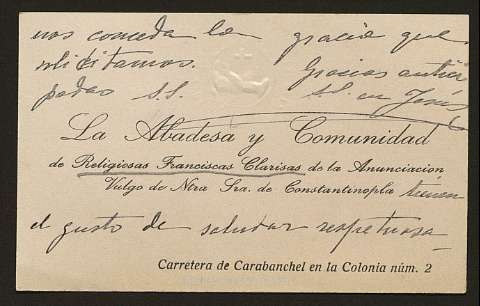 nos conceda la gracia que
solicitamos. Gracias antici
padas S.S. S.S. en Jesús
La Abadesa y Comunidad
de Religiosas Franciscas Clarisas de la Anunciacion
Vulgo de Ntra Sra. de Constantinopla tienen
el gusto de saludar respetuosa
Carretera de Carabanchel en la Colonia núm. 2